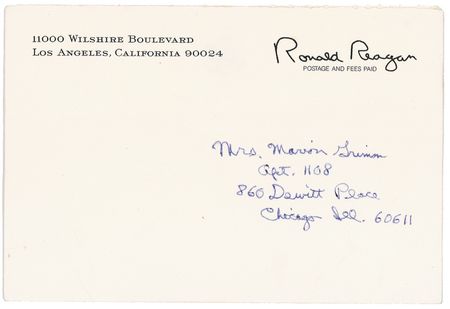 11000 Wilshire Boulevard
Los Angeles, California 90024
Ronald Reagan
POSTAGE AND FEES PAID
Mrs. Marion Grimm
Apt. 1108
860 Dewitt Place
Chicago Ill. 60611